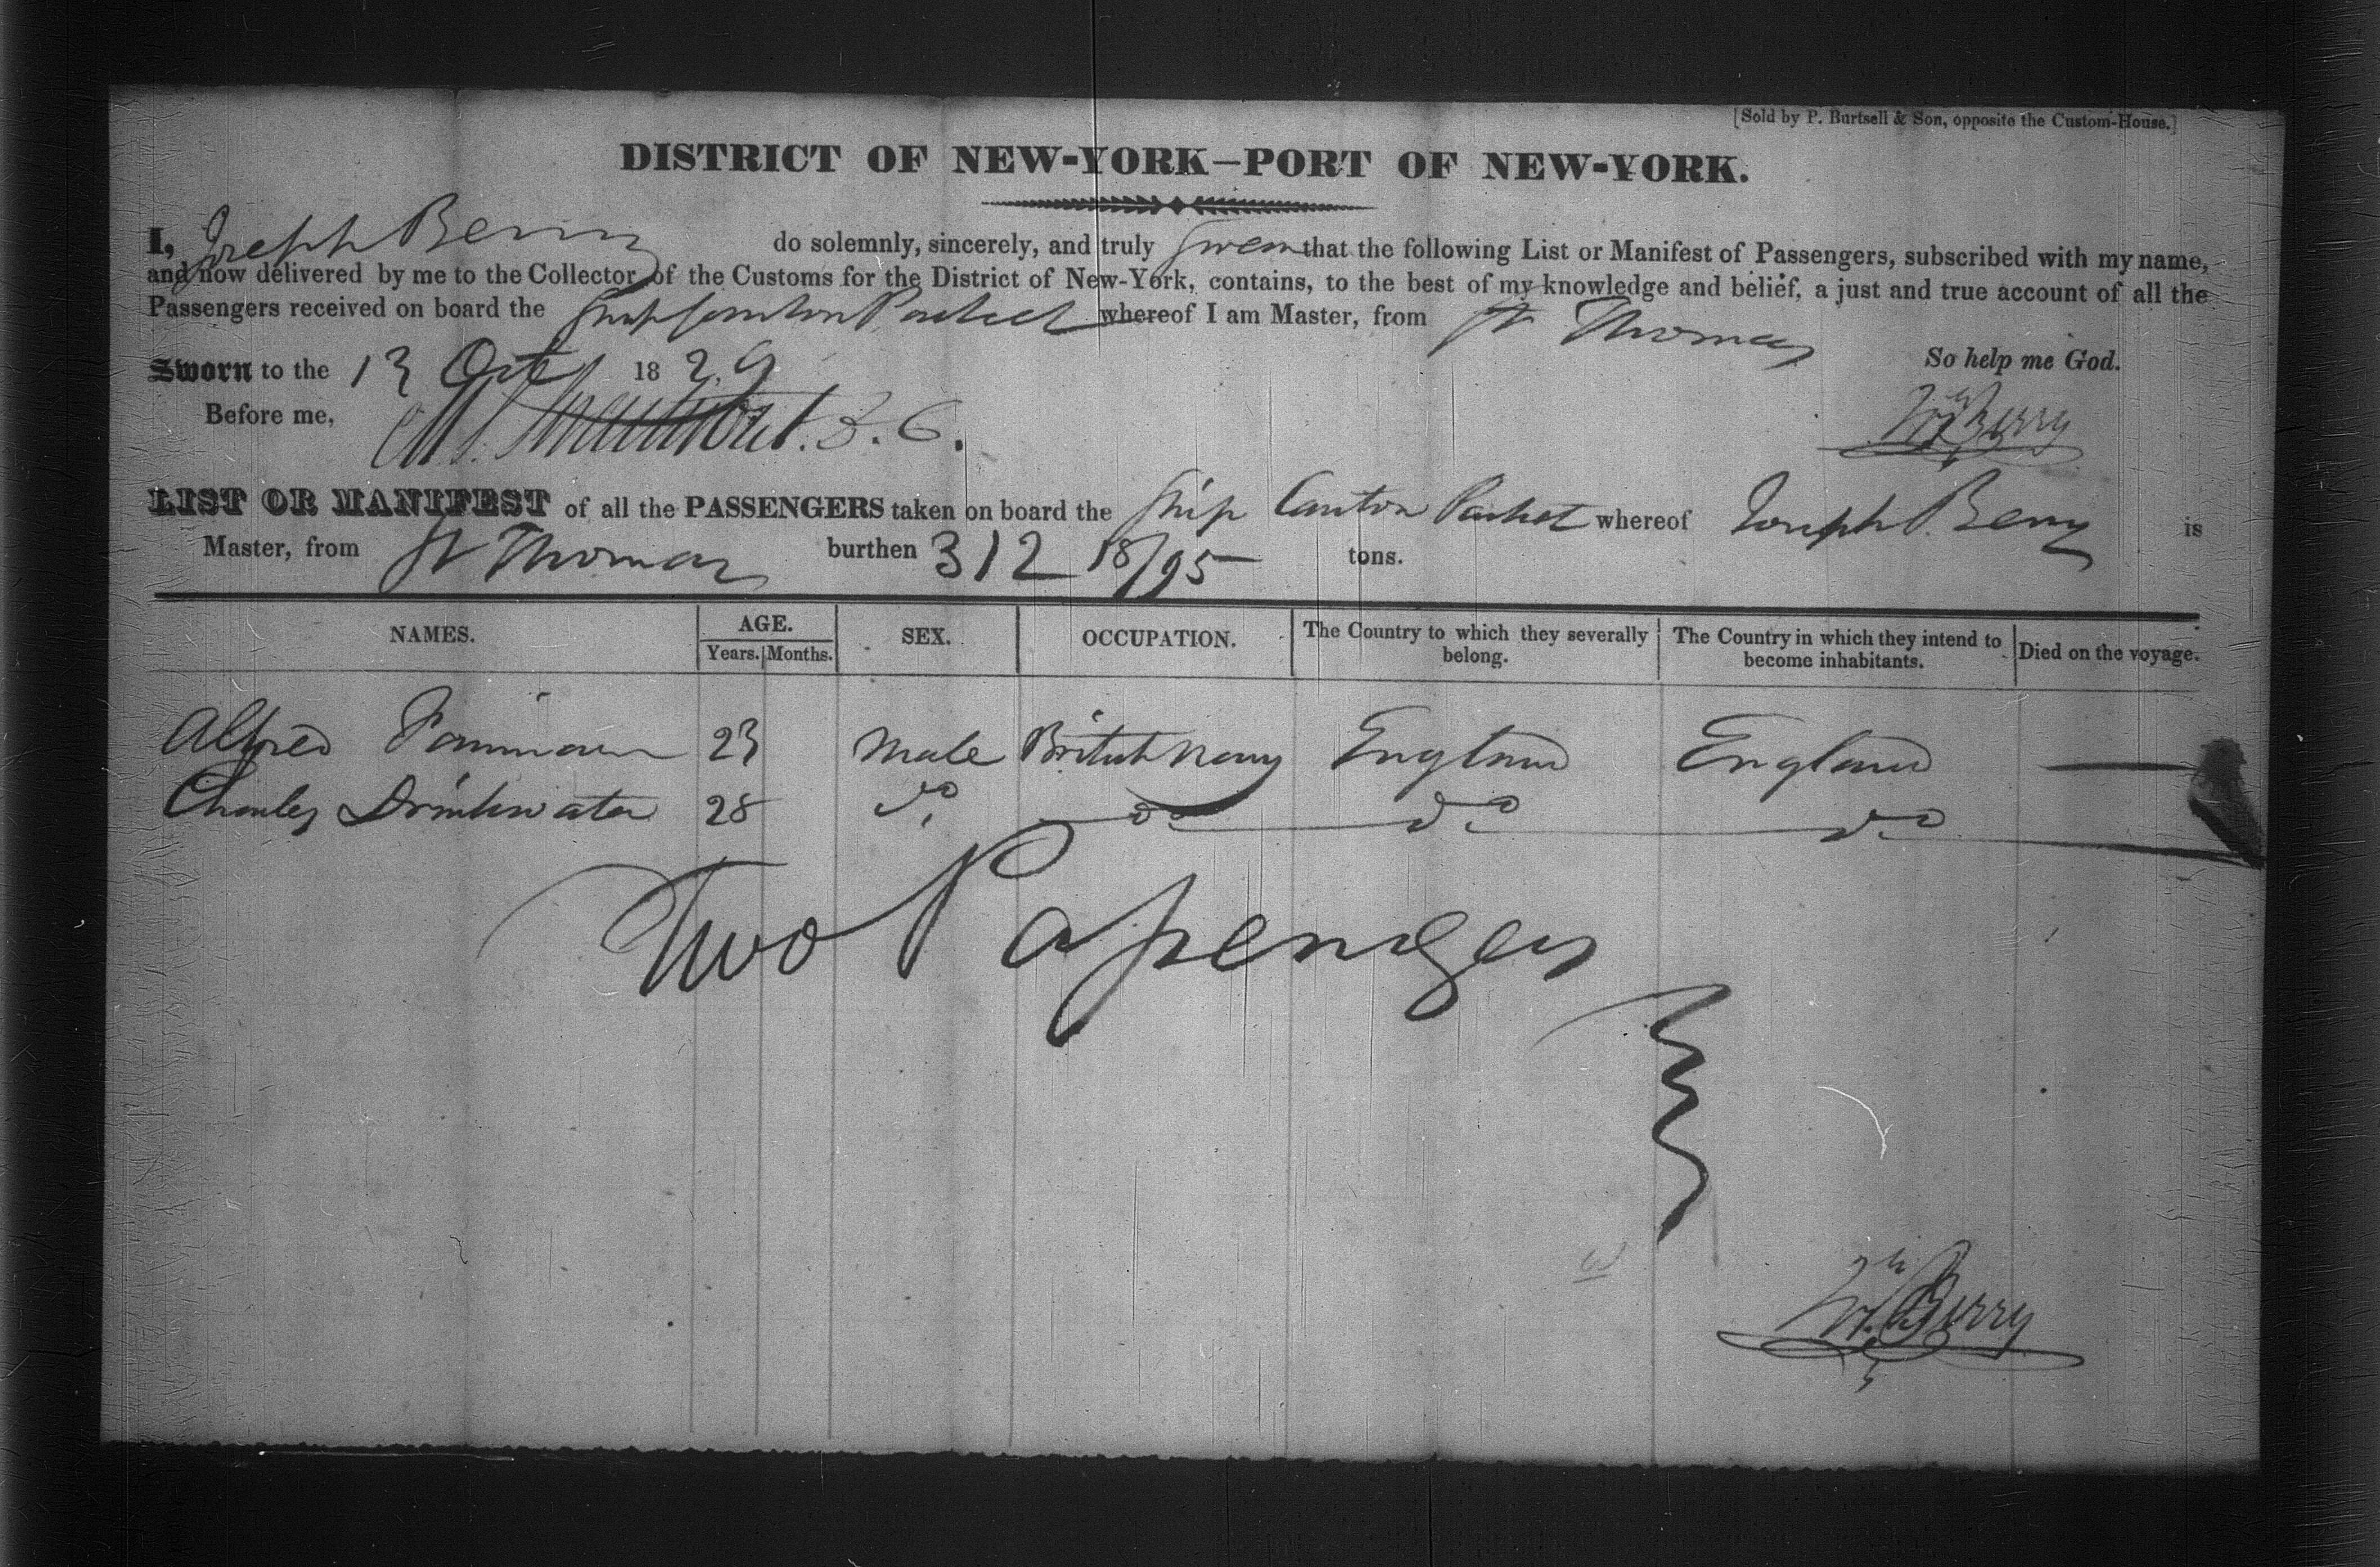 [Sold by P. Burtsell & Son, opposite the Custom-House.]
DISTRICT OF NEW-YORK—PORT OF NEW-YORK.
I, Joseph Berry do solemnly, sincerely, and truly swear that the following List or Manifest of Passengers, subscribed with my name,
and now delivered by me to the Collector of the Customs for the District of New-York, contains, to the best of my knowledge and belief, a just and true account of all the
Passengers received on board the Ship Canton Packet whereof I am Master, from St Thomas
Sworn to the 13 Oct 1829 So help me God.
Before me, D. C. Jos Berry
LIST OR MANIFEST of all the PASSENGERS taken on board the Ship Canton Packet whereof Joseph Berry is
Master, from St Thomas burthen 312 18/95 tons.
NAMES. AGE. SEX. OCCUPATION. The Country to which they severally belong. The Country in which they intend to become inhabitants. Died on the voyage.
Years. Months.
Alfred 23 Male British Navy England England —
Charles Drinkwater 28 do do do do
Two Passengers
Jos Berry